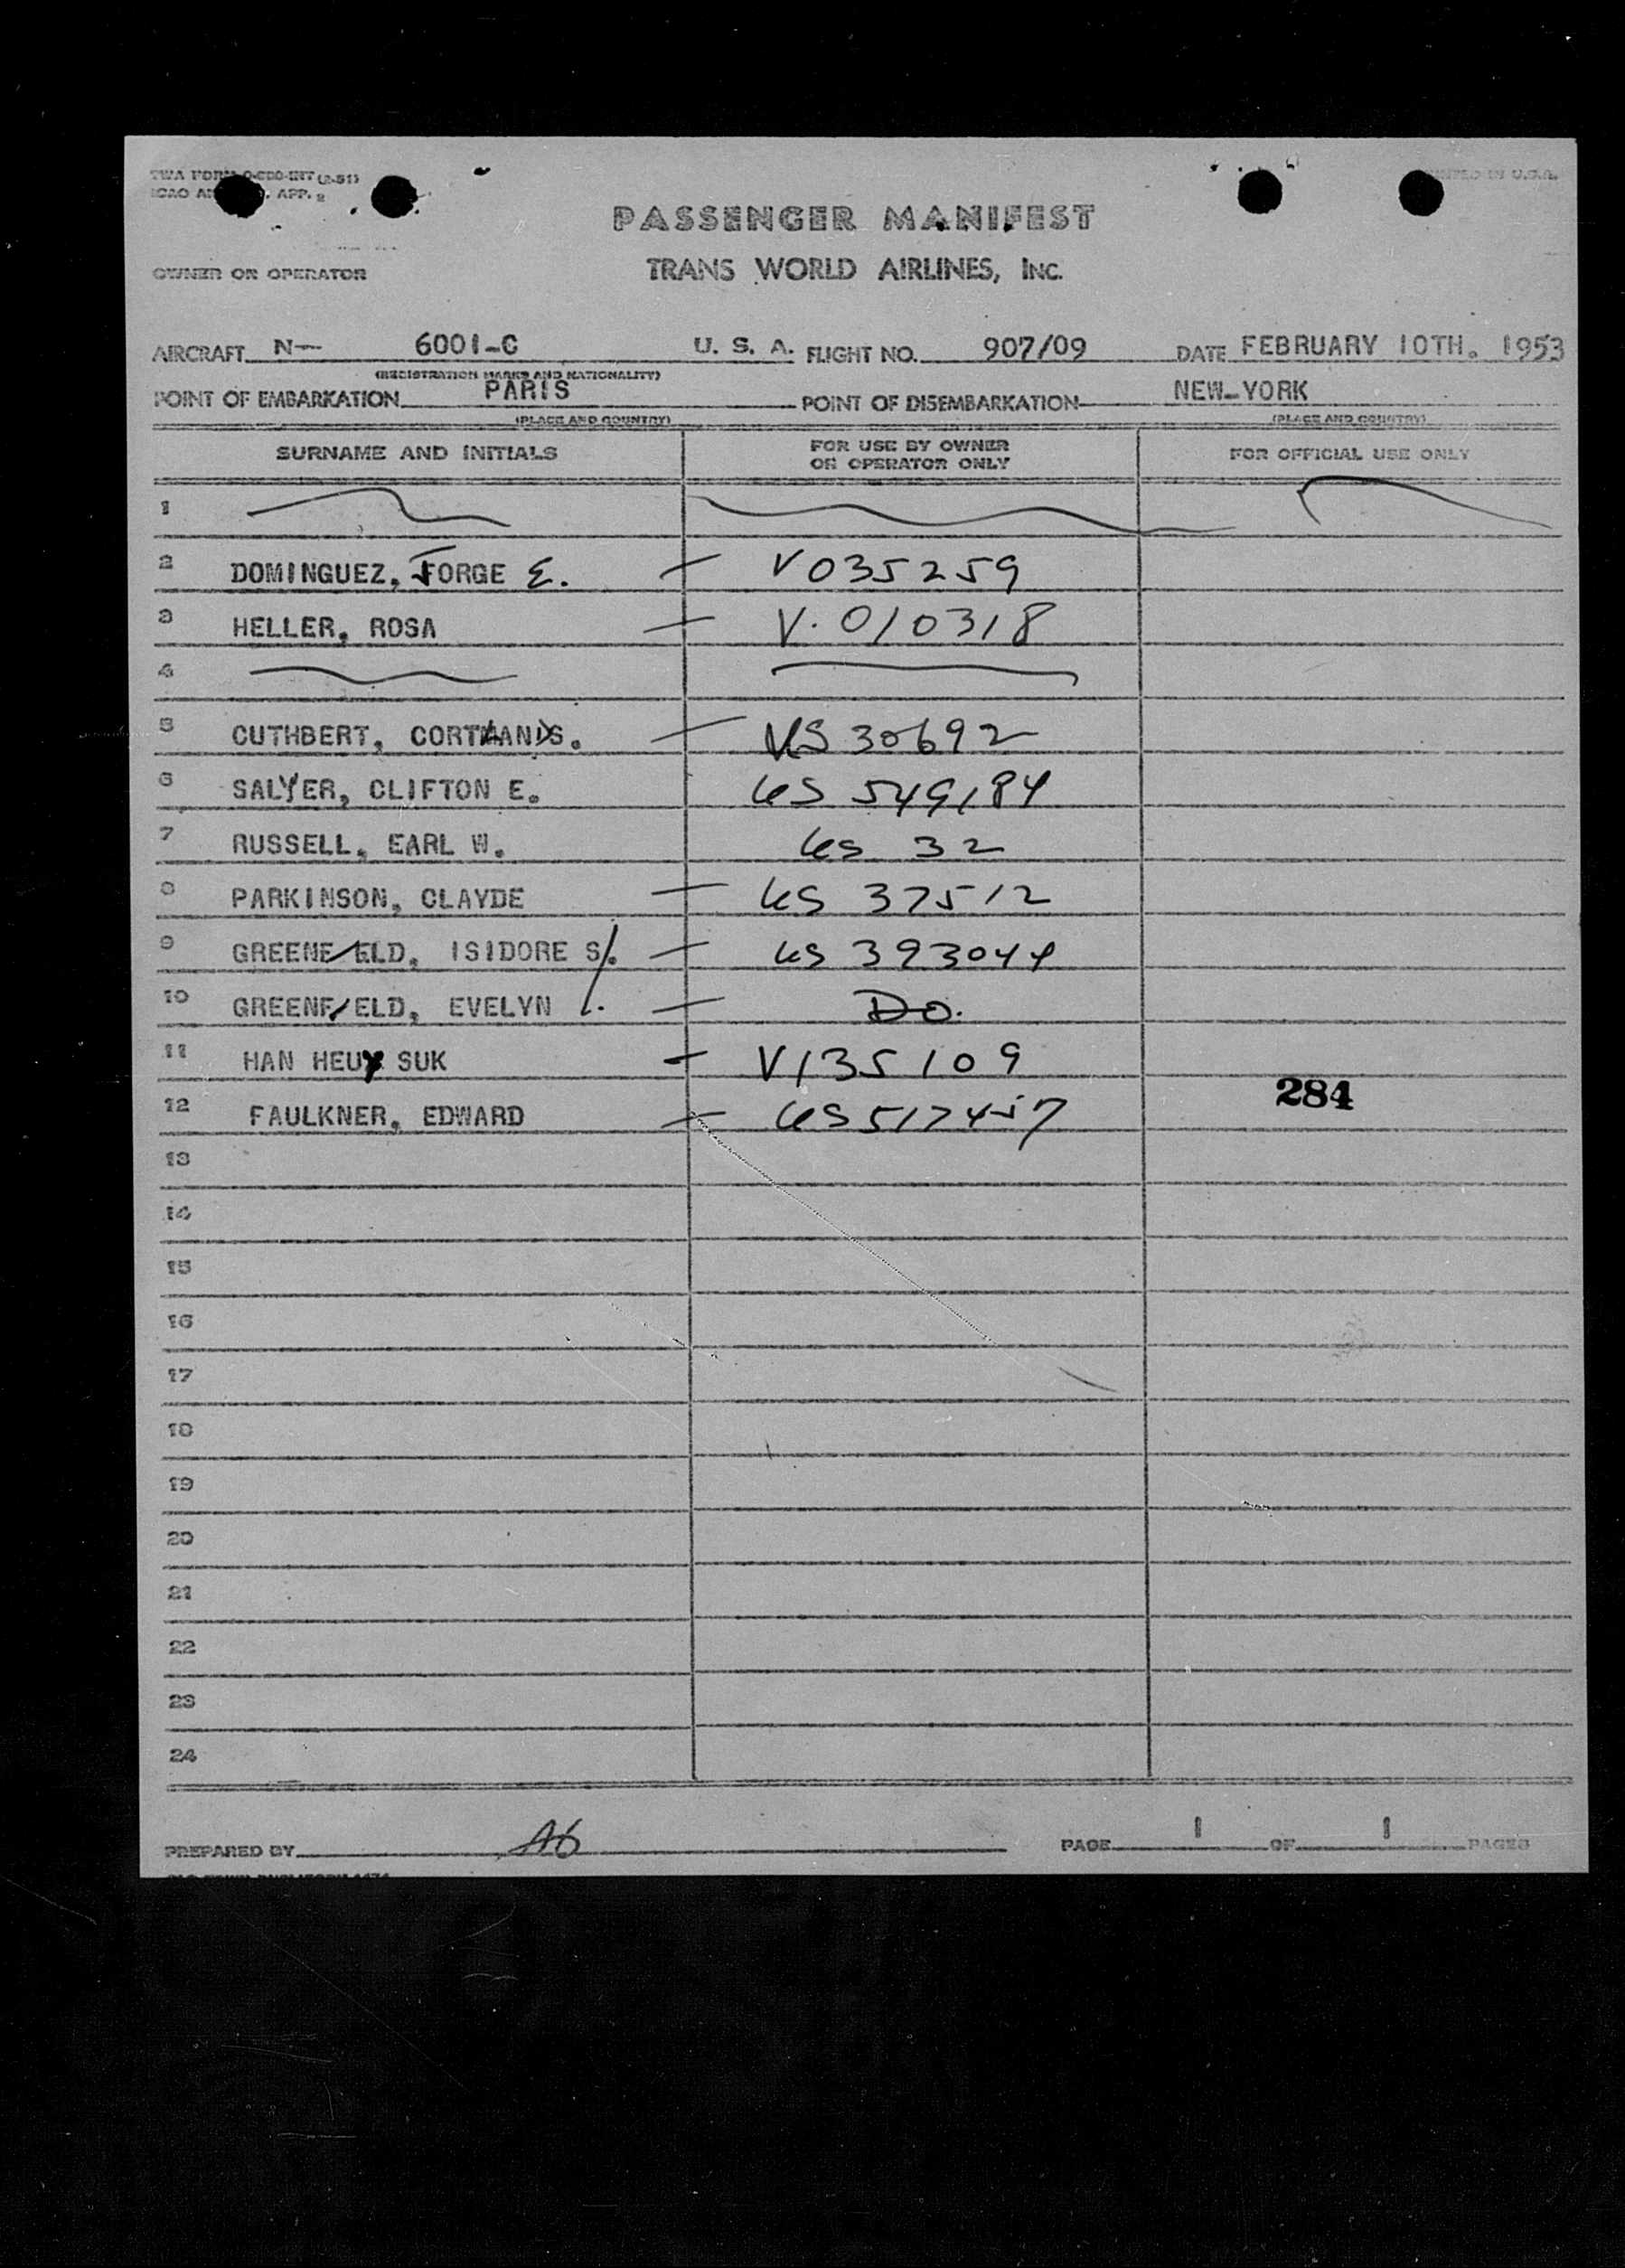 TWA FORM O-CDO-INT (2-51)
ICAO AN . APP. 2
PRINTED IN U.S.A.
PASSENGER MANIFEST
OWNER OR OPERATOR TRANS WORLD AIRLINES, INC.
AIRCRAFT N— 6001-C U. S. A. FLIGHT NO. 907/09 DATE FEBRUARY 10TH. 1953
(REGISTRATION MARKS AND NATIONALITY)
POINT OF EMBARKATION PARIS POINT OF DISEMBARKATION NEW-YORK
(PLACE AND COUNTRY) (PLACE AND COUNTRY)
SURNAME AND INITIALS FOR USE BY OWNER OR OPERATOR ONLY FOR OFFICIAL USE ONLY
1
2 DOMINGUEZ, JORGE E. — V035259
3 HELLER, ROSA — V.010318
4
5 CUTHBERT, CORTLAND S. — US 30692
6 SALYER, CLIFTON E. US 549184
7 RUSSELL, EARL W. US 32
8 PARKINSON, CLAYDE — US 37512
9 GREENFIELD, ISIDORE S. — US 393044
10 GREENFIELD, EVELYN L. — Do.
11 HAN HEUY SUK — V135109
12 FAULKNER, EDWARD — US 517457 284
13
14
15
16
17
18
19
20
21
22
23
24
PREPARED BY PAGE 1 OF 1 PAGES